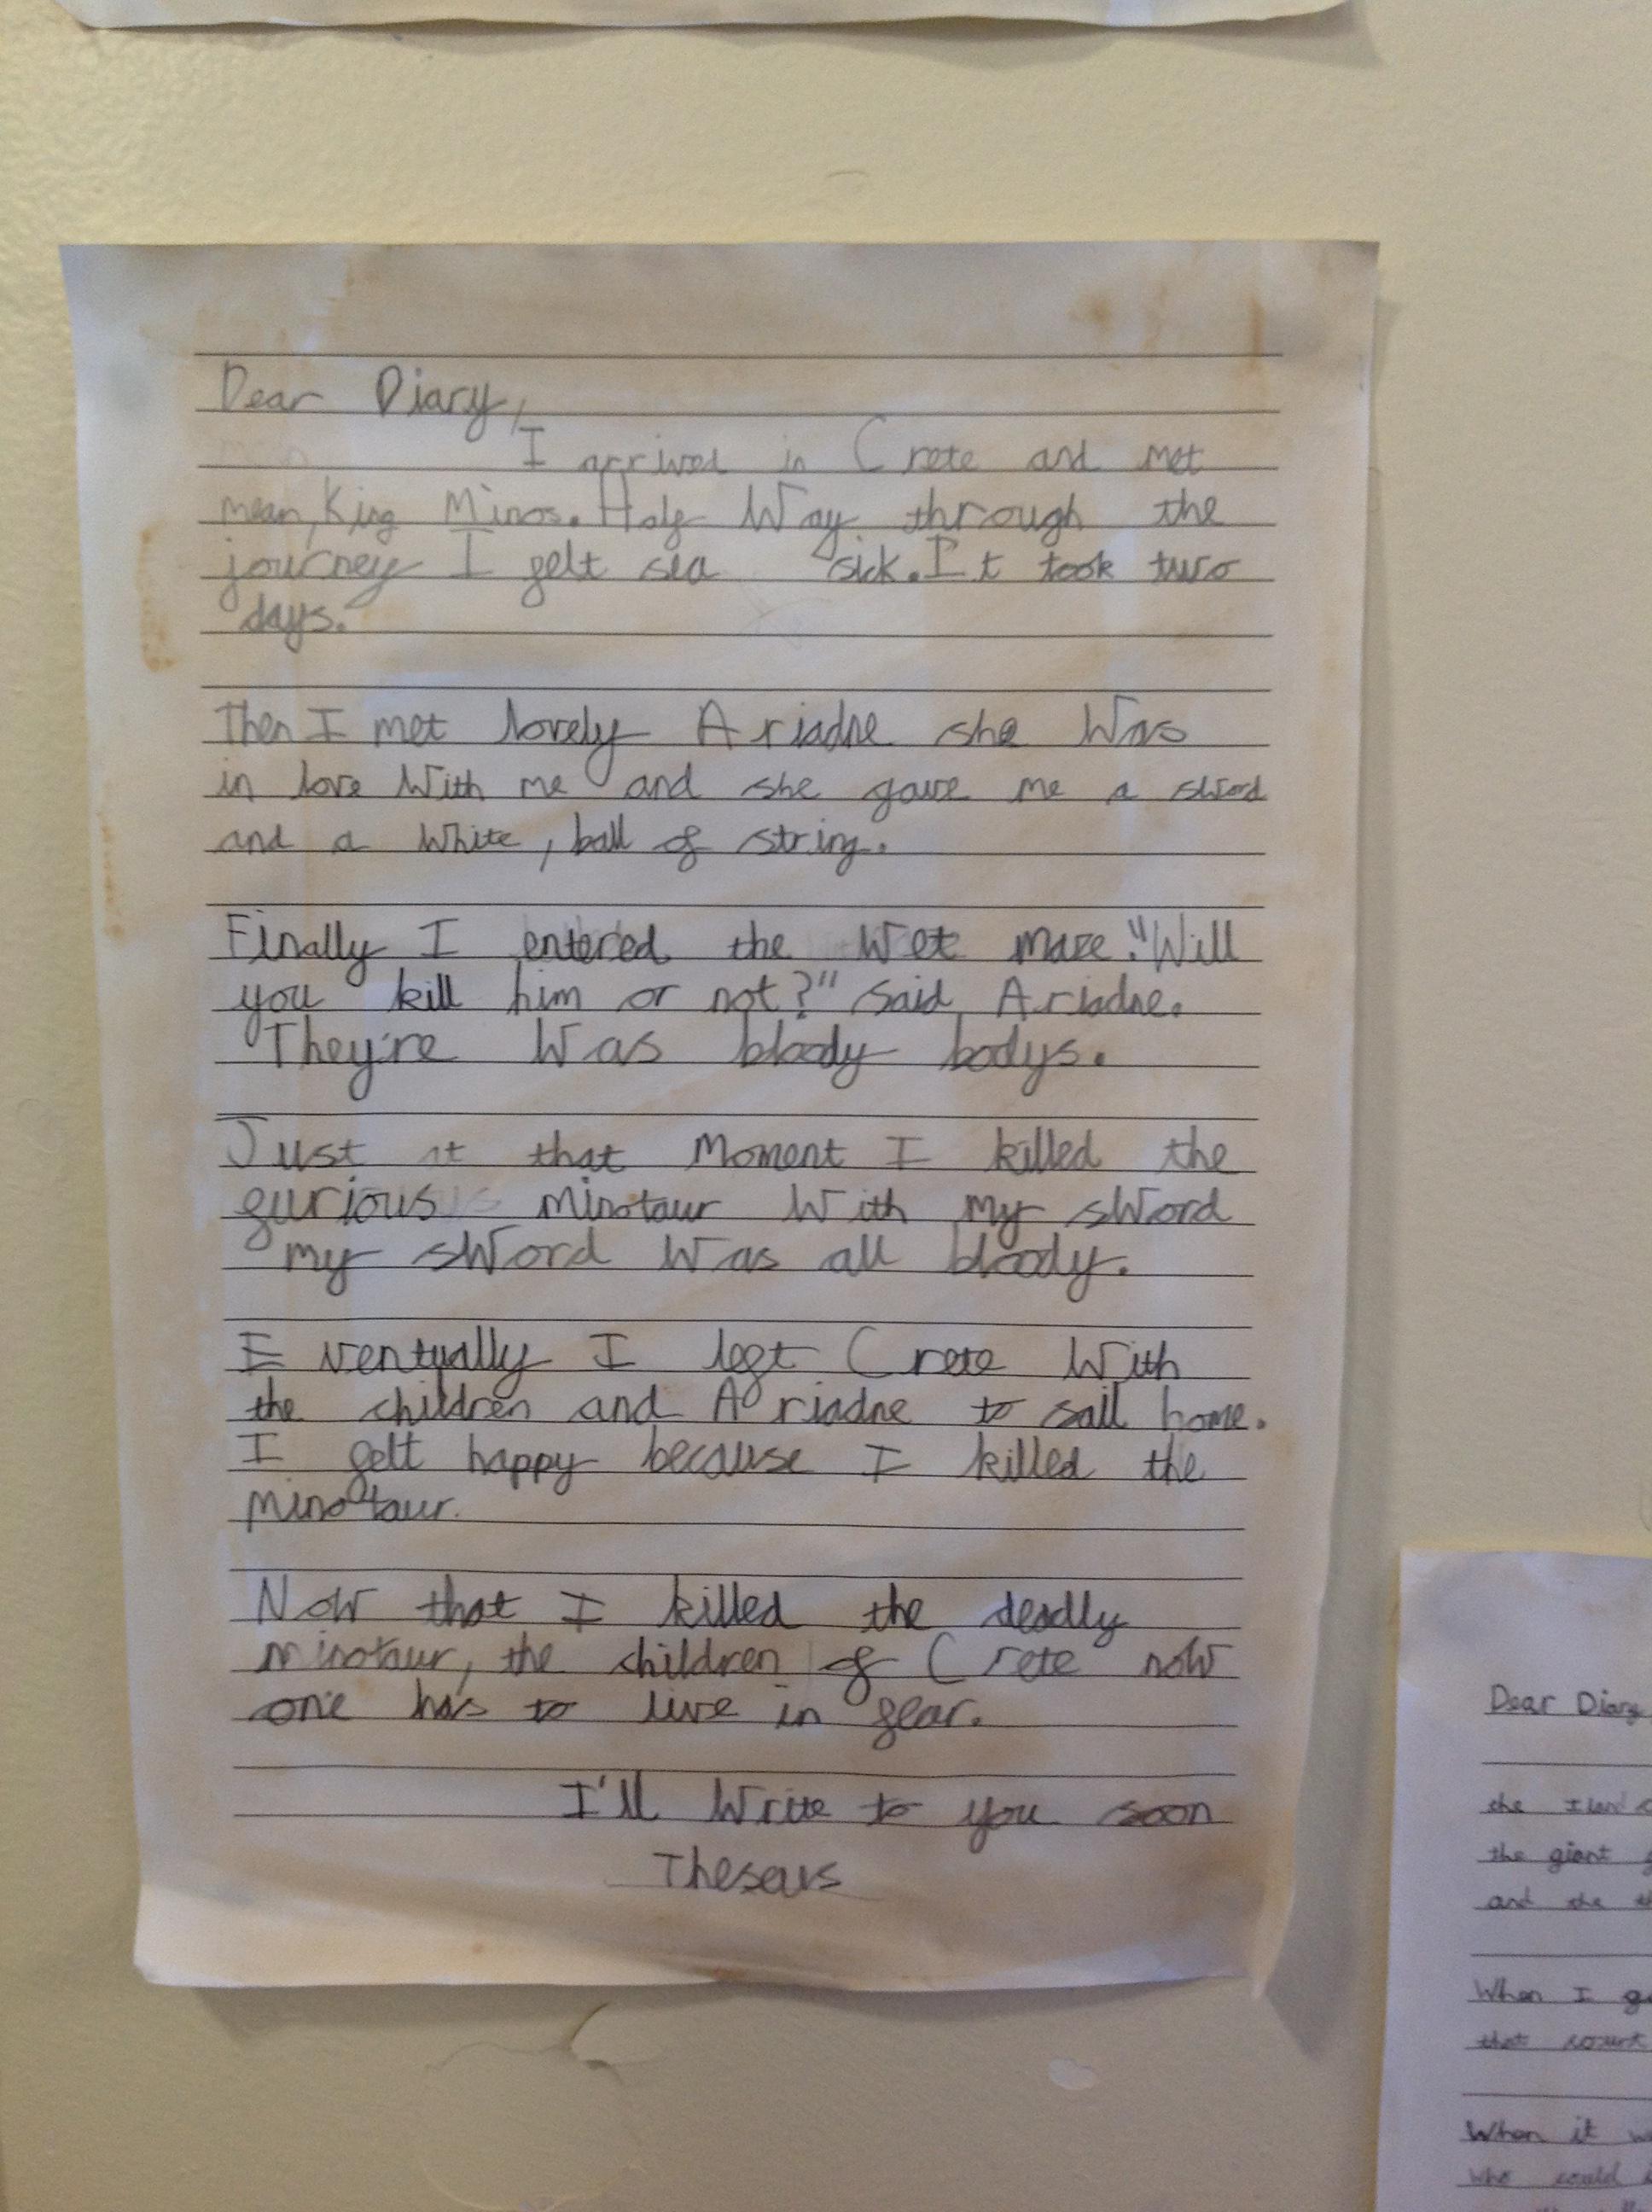 Dear Diary,
I arrived in Crete and met
mean, King Minos. Half Way through the
journey I felt sea sick. It took two
days.
Then I met lovely Ariadne she Was
in love With me and she gave me a sword
and a White, ball of string.
Finally I entered the Wet maze. "Will
you kill him or not?" said Ariadne.
They're Was bloody bodys.
Just at that Moment I killed the
furious minotaur With my sWord
my sWord Was all bloody.
Eventually I left Crete With
the children and Ariadne to sail home.
I felt happy because I killed the
minotaur.
Now that I killed the deadly
minotaur, the children of Crete now
one has to live in fear.
I'll Write to you soon
Theseus
Dear Diary
the
the giant
and the
When I
that
When it
who could